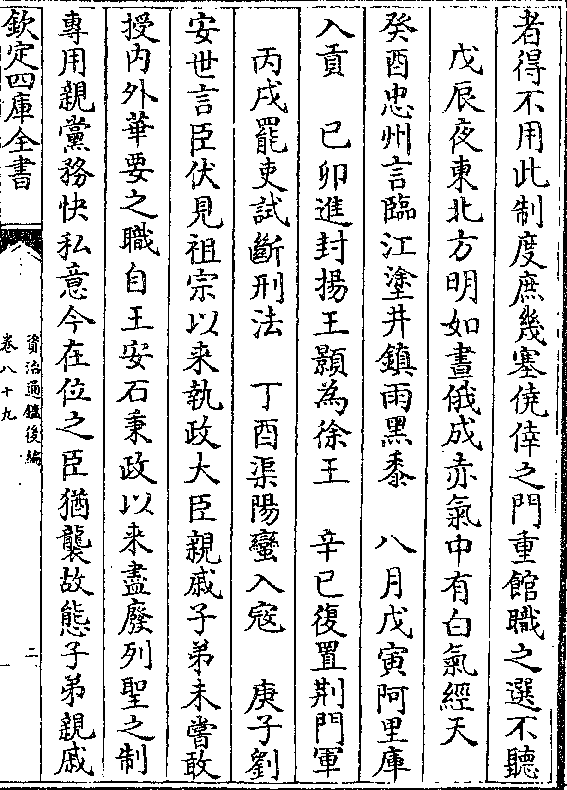 者得不用此制度庶幾塞僥倖之門重館職之選不聽
戊辰夜東北方明如晝俄成赤氣中有白氣經天
癸酉忠州言臨江塗井鎮雨黑黍　八月戊寅阿里庫
入貢　已卯進封揚王顥為徐王　辛已復置荆門軍
丙戌罷吏試斷刑法　丁酉渠陽蠻入寇　庚子劉
安世言臣伏見祖宗以来執政大臣親戚子弟未嘗敢
授内外華要之職自王安石秉政以来盡廢列聖之制
專用親黨務快私意今在位之臣猶襲故態子弟親戚
欽定四庫全書
資治通鑑後編
卷八十九
二